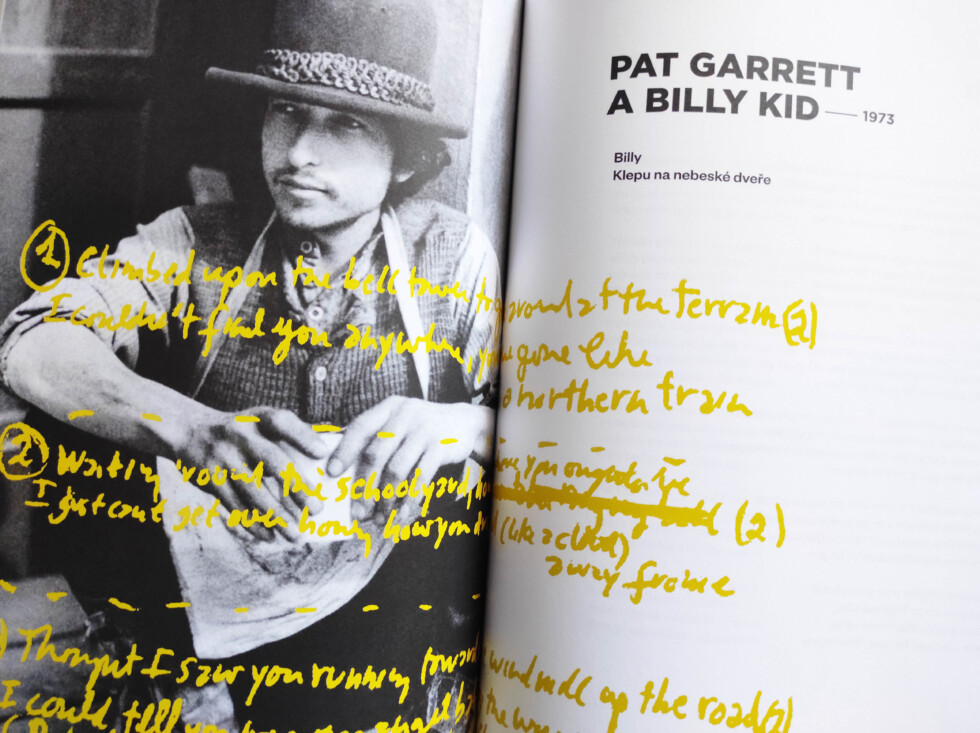 PAT GARRETT
A BILLY KID — 1973
Billy
Klepu na nebeské dveře
1 Climbed upon the bell tower to around at the terrain (2)
I couldn't find you anywhere, gone like
a northern train
2 Waiting 'round the schoolyard,
I just can't get over honey how you (like a cloud) (2)
away from me
Thought I saw you running toward windmill up the road (2)
I could tell you the